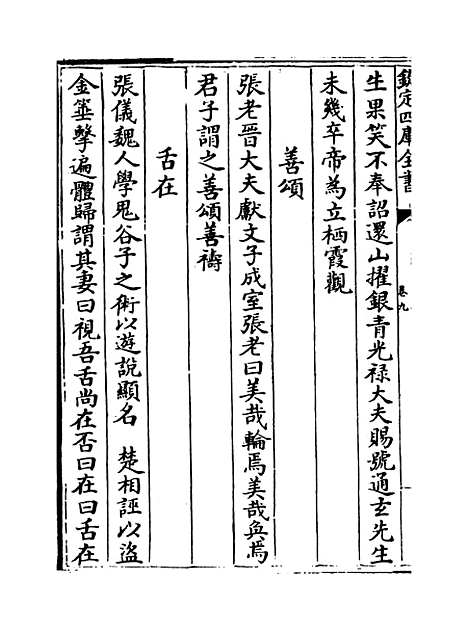 欽定四庫全書
卷九
生果笑不奉詔還山擢銀青光禄大夫賜號通玄先生
未幾卒帝為立栖霞觀
善頌
張老晉大夫獻文子成室張老曰美哉輪焉美哉奐焉
君子謂之善頌善禱
舌在
張儀魏人學鬼谷子之術以遊說顯名 楚相誣以盜
金篚擊遍體歸謂其妻曰視吾舌尚在否曰在曰舌在